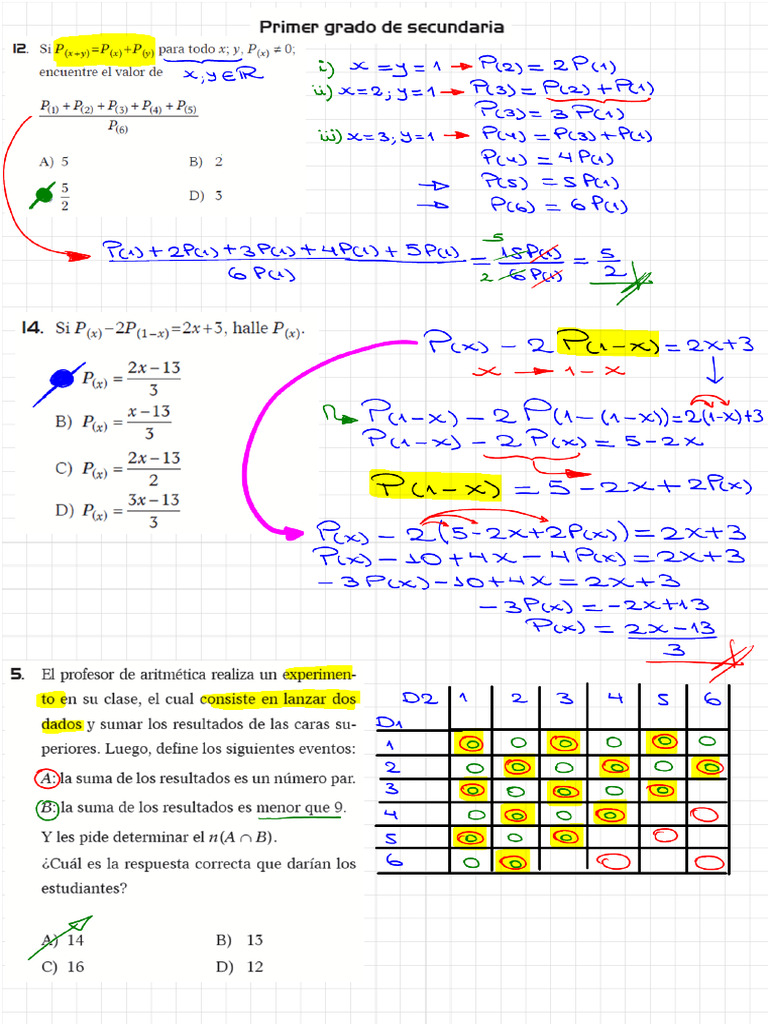 Primer grado de secundaria
12. Si P(x+y)=P(x)+P(y) para todo x; y, P(x) ≠ 0;
encuentre el valor de
x,y∈ℝ
P(1) + P(2) + P(3) + P(4) + P(5)
P(6)
A) 5
B) 2
5
2
D) 3
i) x = y = 1 → P(2) = 2P(1)
ii) x=2; y=1 → P(3) = P(2) + P(1)
P(3) = 3P(1)
iii) x=3; y=1 → P(4) = P(3) + P(1)
P(4) = 4P(1)
⇒ P(5) = 5P(1)
⇒ P(6) = 6P(1)
P(1) + 2P(1) + 3P(1) + 4P(1) + 5P(1)
6P(1)
= 5 15P(1)
2 6P(1)
= 5
2
14. Si P(x)−2P(1−x)=2x+3, halle P(x).
P(x) = 2x−13
3
B) P(x) = x−13
3
C) P(x) = 2x−13
2
D) P(x) = 3x−13
3
P(x) − 2 P(1−x) = 2x+3
x → 1 − x
P(1−x) − 2P(1−(1−x)) = 2(1−x)+3
P(1−x) − 2P(x) = 5−2x
P(1−x) = 5 − 2x + 2P(x)
P(x) − 2(5−2x+2P(x)) = 2x+3
P(x) − 10 + 4x − 4P(x) = 2x+3
−3P(x) − 10 + 4x = 2x+3
−3P(x) = −2x+13
P(x) = 2x−13
3
5. El profesor de aritmética realiza un experimen-
to en su clase, el cual consiste en lanzar dos
dados y sumar los resultados de las caras su-
periores. Luego, define los siguientes eventos:
A: la suma de los resultados es un número par.
B: la suma de los resultados es menor que 9.
Y les pide determinar el n(A ∩ B).
¿Cuál es la respuesta correcta que darían los
estudiantes?
A) 14
B) 13
C) 16
D) 12
D2 1 2 3 4 5 6
D1
1
2
3
4
5
6